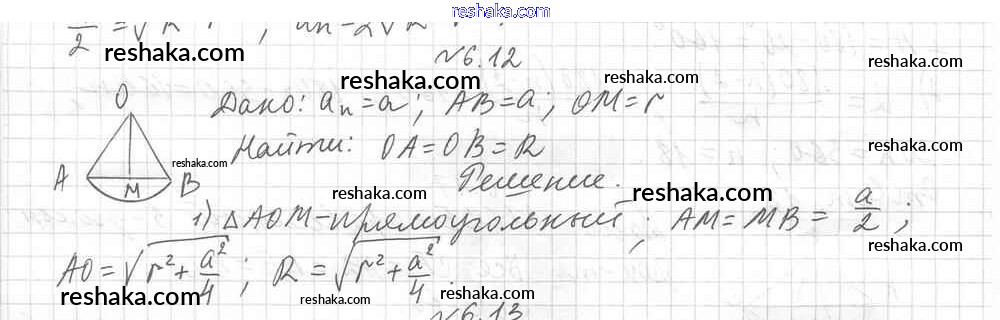 reshaka.com
/2 = √R² ; an = 2√R²
reshaka.com
№6.12
reshaka.com reshaka.com reshaka.com
O
Дано: aₙ = a; AB = a; OM = r
reshaka.com
Найти: OA = OB = R
reshaka.com
A M B
Решение.
reshaka.com reshaka.com reshaka.com
1) △AOM - прямоугольный; AM = MB = a/2;
AO = √(r² + a²/4); R = √(r² + a²/4).
reshaka.com reshaka.com reshaka.com reshaka.com
№6.13